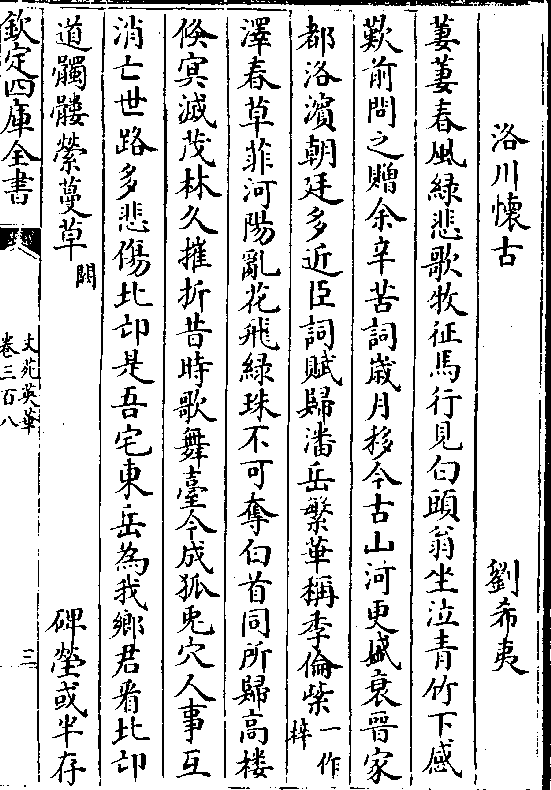 洛川懷古　劉希夷
萋萋春風綠悲歌牧征馬行見白頭翁坐泣青竹下感
歎前問之贈余辛苦詞歲月移今古山河更盛衰晉家
都洛濱朝廷多近臣詞賦歸潘岳繁華稱季倫柴一作梓
澤春草菲河陽亂花飛綠珠不可奪白首同所歸高樓
倐㝠滅茂林久摧折昔時歌舞臺今成狐兎穴人事互
消亡世路多悲傷北邙是吾宅東岳為我鄉君看北邙
道髑髏縈蔓草闕　碑塋或半存
欽定四庫全書　文苑英華卷三百八　三